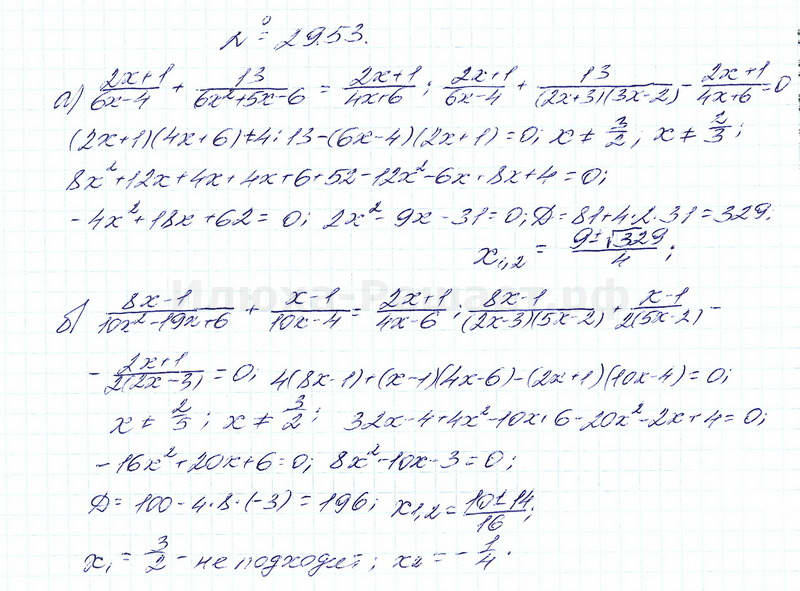 № 29.53.
а) (2x+1)/(6x-4) + 13/(6x²+5x-6) = (2x+1)/(4x+6); (2x+1)/(6x-4) + 13/((2x+3)(3x-2)) - (2x+1)/(4x+6) = 0
(2x+1)(4x+6)+4·13-(6x-4)(2x+1)=0; x ≠ 3/2; x ≠ 2/3;
8x²+12x+4x+4x+6+52-12x²-6x+8x+4=0;
-4x²+18x+62=0; 2x²-9x-31=0; D=81+4·2·31=329;
x₁,₂ = (9±√329)/4;
б) (8x-1)/(10x²-19x+6) + (x-1)/(10x-4) = (2x+1)/(4x-6); (8x-1)/((2x-3)(5x-2)) + (x-1)/(2(5x-2)) -
- (2x+1)/(2(2x-3)) = 0; 4(8x-1)+(x-1)(4x-6)-(2x+1)(10x-4)=0;
x ≠ 2/5; x ≠ 3/2; 32x-4+4x²-10x+6-20x²-2x+4=0;
-16x²+20x+6=0; 8x²-10x-3=0;
D=100-4·8·(-3)=196; x₁,₂ = (10±14)/16;
x₁ = 3/2 - не подходит; x₂ = -1/4.